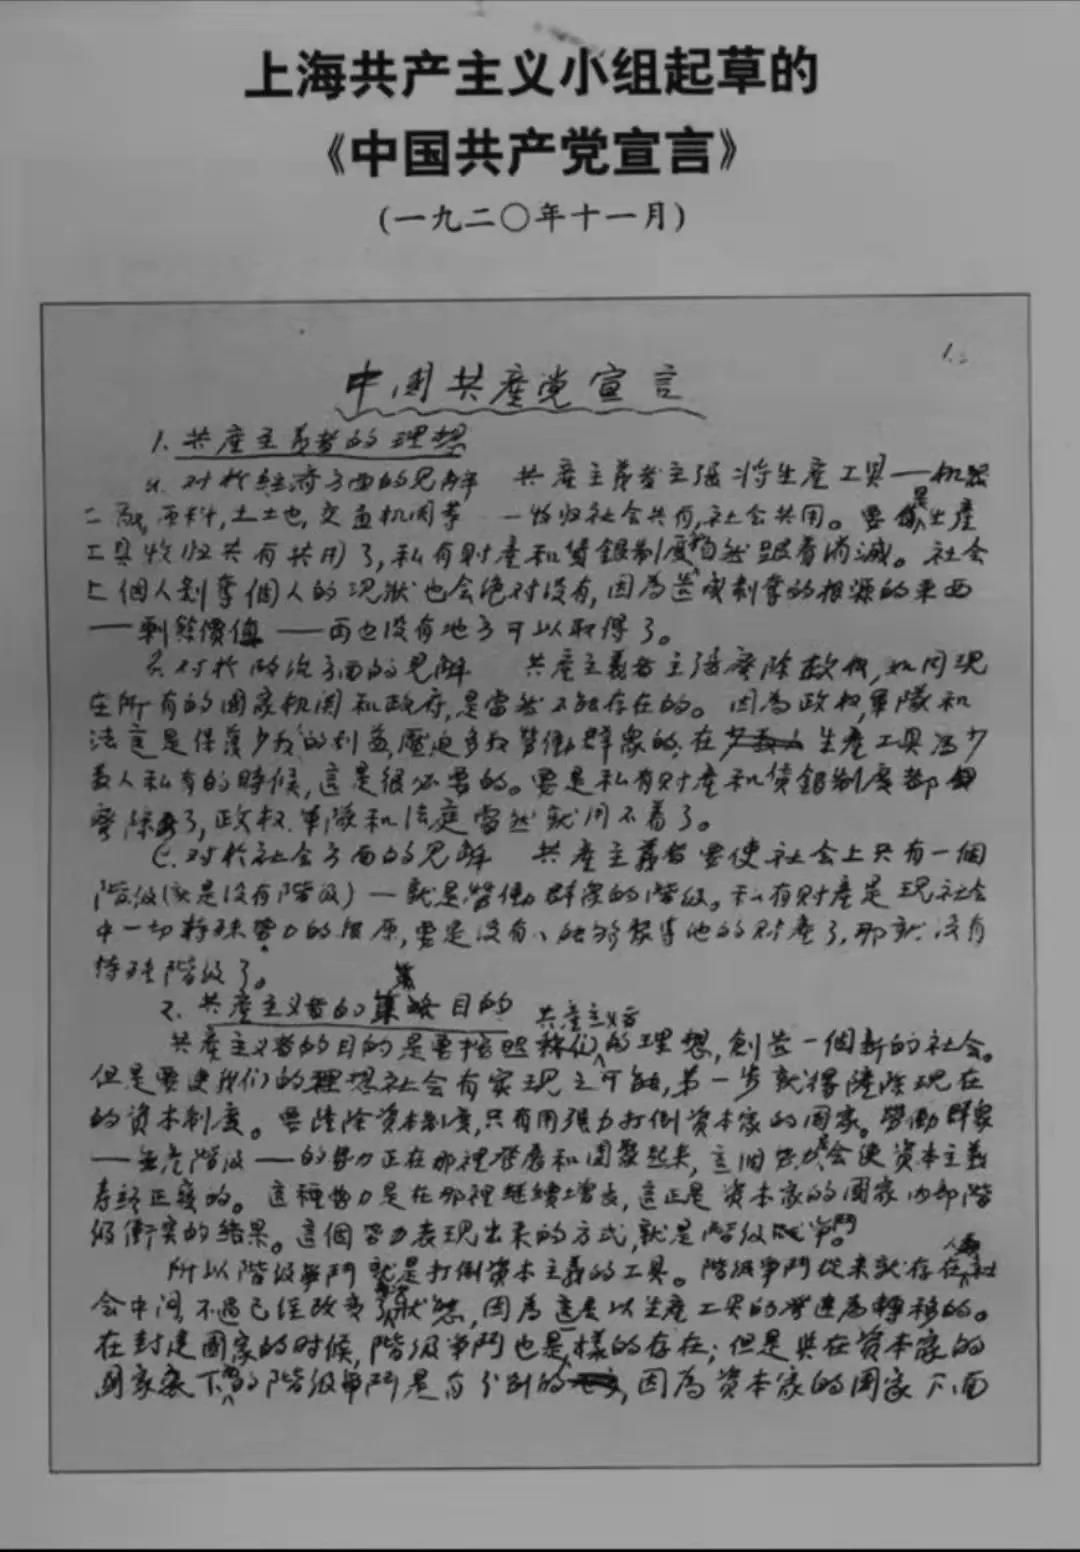 上海共产主义小组起草的
《中国共产党宣言》
(一九二〇年十一月)
1.
中国共產党宣言
1. 共產主義者的理想
a. 对於经济方面的见解 共產主義者主張将生產工具——机器
工厰,原料,土地,交通机関等——收归社会共有,社会共用。要是生產
工具收归共有共用了,私有财產和赁銀制度自然跟着消滅。社会
上個人剝奪個人的现狀也会绝对没有,因為造成剝奪的根源的東西
——剩餘價值——再也没有地方可以取得了。
B. 对於政治方面的见解 共產主義者主張廢除政权,如同现
在所有的國家机関和政府,是當然不能存在的。因為政权,軍隊和
法庭是保護少数的利益,壓迫多数勞働群衆的;在生產工具為少
数人私有的時候,這是很必要的。要是私有财產和赁銀制度都
廢除了,政权、軍隊和法庭當然就用不着了。
C. 对於社会方面的见解 共產主義者要使社会上只有一個
階级(就是没有階级)——就是勞働群衆的階级。私有财產是现社会
中一切特殊势力的根原,要是没有人能够聚集他的财產了,那就没有
特殊階级了。
2. 共產主义者的目的
共產主义者的目的是要按照共產主义者的理想,創造一個新的社会。
但是要使我们的理想社会有实现之可能,第一步就得剷除现在
的资本制度。要剷除资本制度,只有用强力打倒资本家的国家。勞働群衆
——無產階级——的势力正在那裡發展和团聚起来,這個势力会使资本主義
寿終正寢的。這種势力是在那裡继續增长,這正是资本家的国家内部階
级衝突的结果。這個势力表现出来的方式,就是階级争鬥。
所以階级争鬥就是打倒资本主義的工具。階级争鬥從来就存在人類社
会中间,不過已经改变了狀態,因為這是以生產工具的發達為轉移的。
在封建國家的时候,階级争鬥也是一樣的存在;但是與在资本家的
国家底下的階级争鬥是有分别的,因為资本家的国家下面